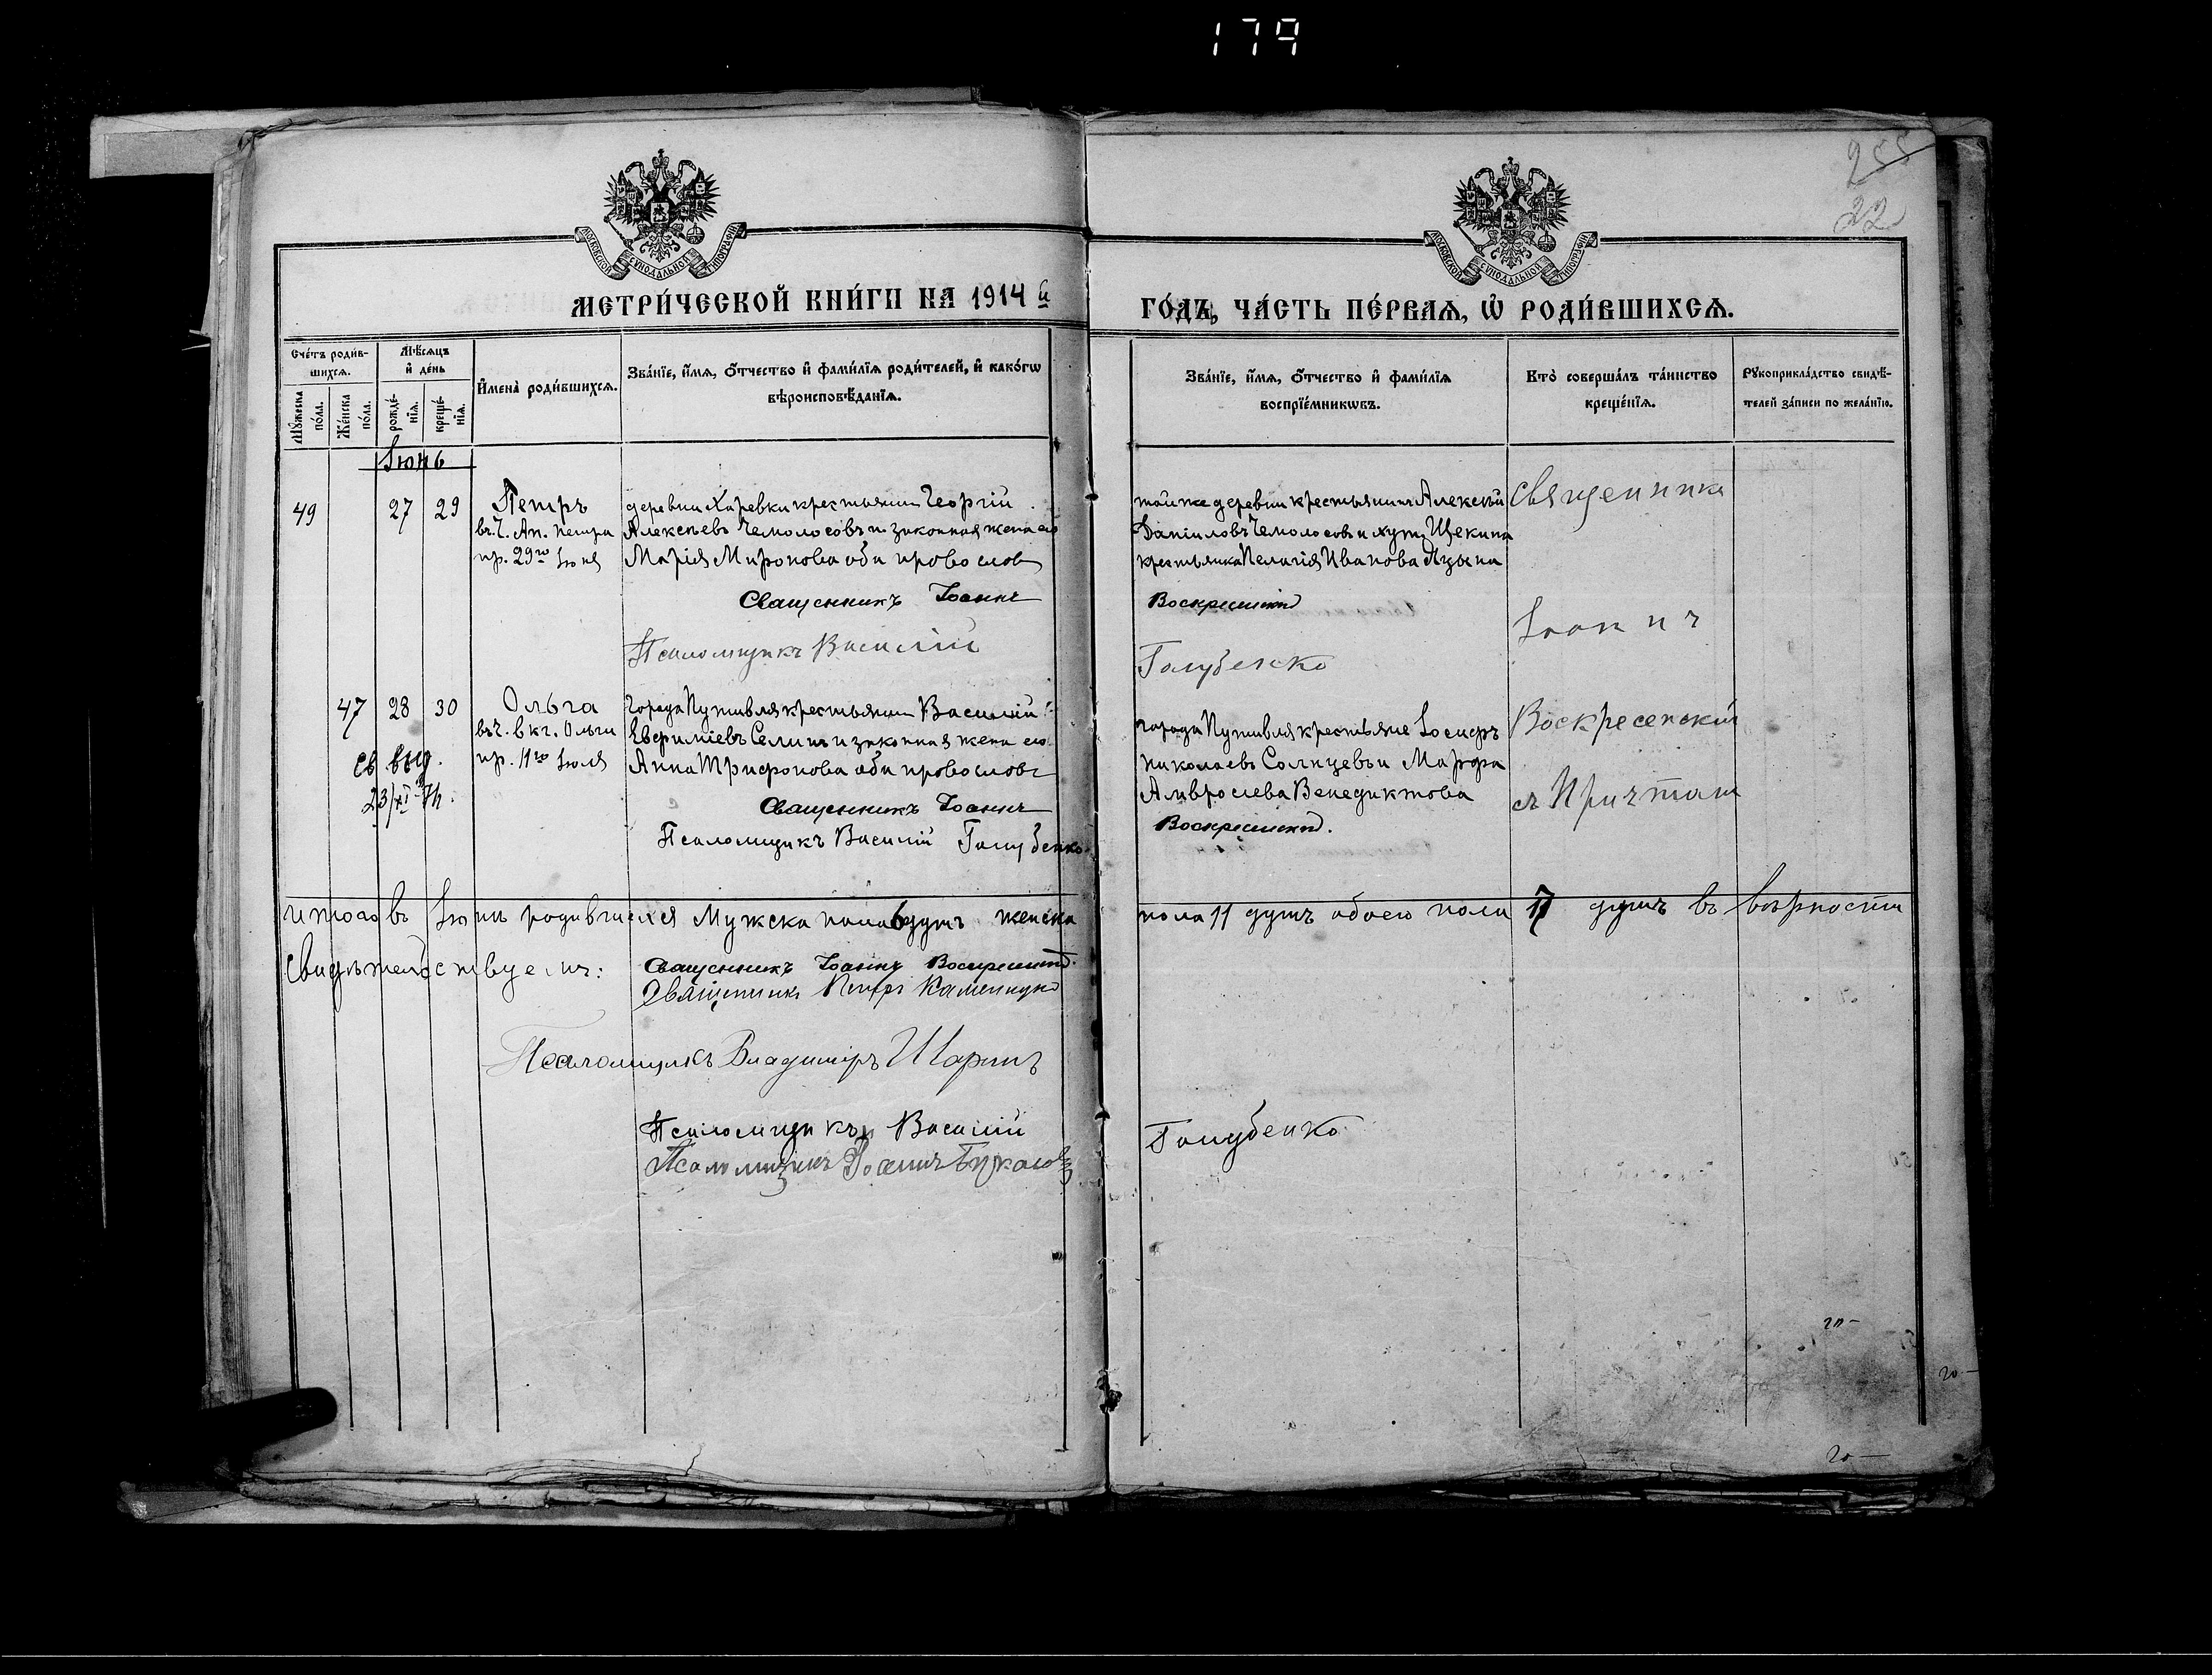 179
255
22
МОСКОВСКОЙ СѴНОДАЛЬНОЙ ТИПОГРАФІИ
МОСКОВСКОЙ СѴНОДАЛЬНОЙ ТИПОГРАФІИ
МЕТРИ́ЧЕСКОЙ КНИ́ГИ НА 1914 й
ГО́ДЪ, ЧА́СТЬ ПЕ́РВАЯ, Ѡ҆ РОДИ́ВШИХСЯ.
Сче́тъ роди́в-
шихся.
Мѣ́сяцъ
и҆ де́нь
Му́жеска по́ла.
Же́нска по́ла.
рожде́-
нія.
креще́-
нія.
И҆мена̀ роди́вшихся.
Зва́нїе, и҆́мя, ѻ҆́тчество и҆ фами́лїя роди́телей, и҆ како́гѡ
вѣроисповѣ́данїя.
Зва́нїе, и҆́мя, ѻ҆́тчество и҆ фами́лїя
воспрїе́мникѡвъ.
Кто̀ соверша́лъ та́инство
креще́нїя.
Рꙋкоприкла́дство свидѣ́-
телей за́писи по жела́нїю.
Іюнь
49 27 29 Петръ
въ ч. Ап. Петра
пр. 29го Іюня
деревни Харевки крестьянин Георгій
Алексѣевъ Чемолосовъ и законная жена его
Марія Миронова оба правослов
Священникъ Іоаннъ
Псаломщикъ Василій
той же деревни крестьянинъ Алексѣй
Даніиловъ Чемолосовъ и хут. Щекина
крестьянка Пелагія Иванова Яцына
Воскресенскій
Голубенко
Священникъ
Іоаннъ
Воскресенскій
съ Причтомъ
47 28 30 Ольга
въ ч. в кг. Ольги
пр. 11го Іюля
св выд.
23/XI-
Города Путивля крестьянин Василій
Евфиміевъ Селинъ и законная жена его
Анна Трифонова оба православ
Священникъ Іоаннъ
Псаломщикъ Василій Голубенко
города Путивля крестьяне Іосифъ
Николаевъ Солнцевъ и Марфа
Амвросіева Венедиктова
Воскресенскій.
итого въ Іюнѣ родившихся Мужска пола 6 душъ женска
пола 11 душъ обоего пола 17 душъ въ вѣрности
свидѣтельствуемъ:
Священникъ Іоаннъ Воскресенскій.
Священникъ Петръ Каменецкій
Псаломщикъ Владиміръ Шаринъ
Псаломщикъ Василій
Голубенко
Псаломщикъ
20-
20-
20-